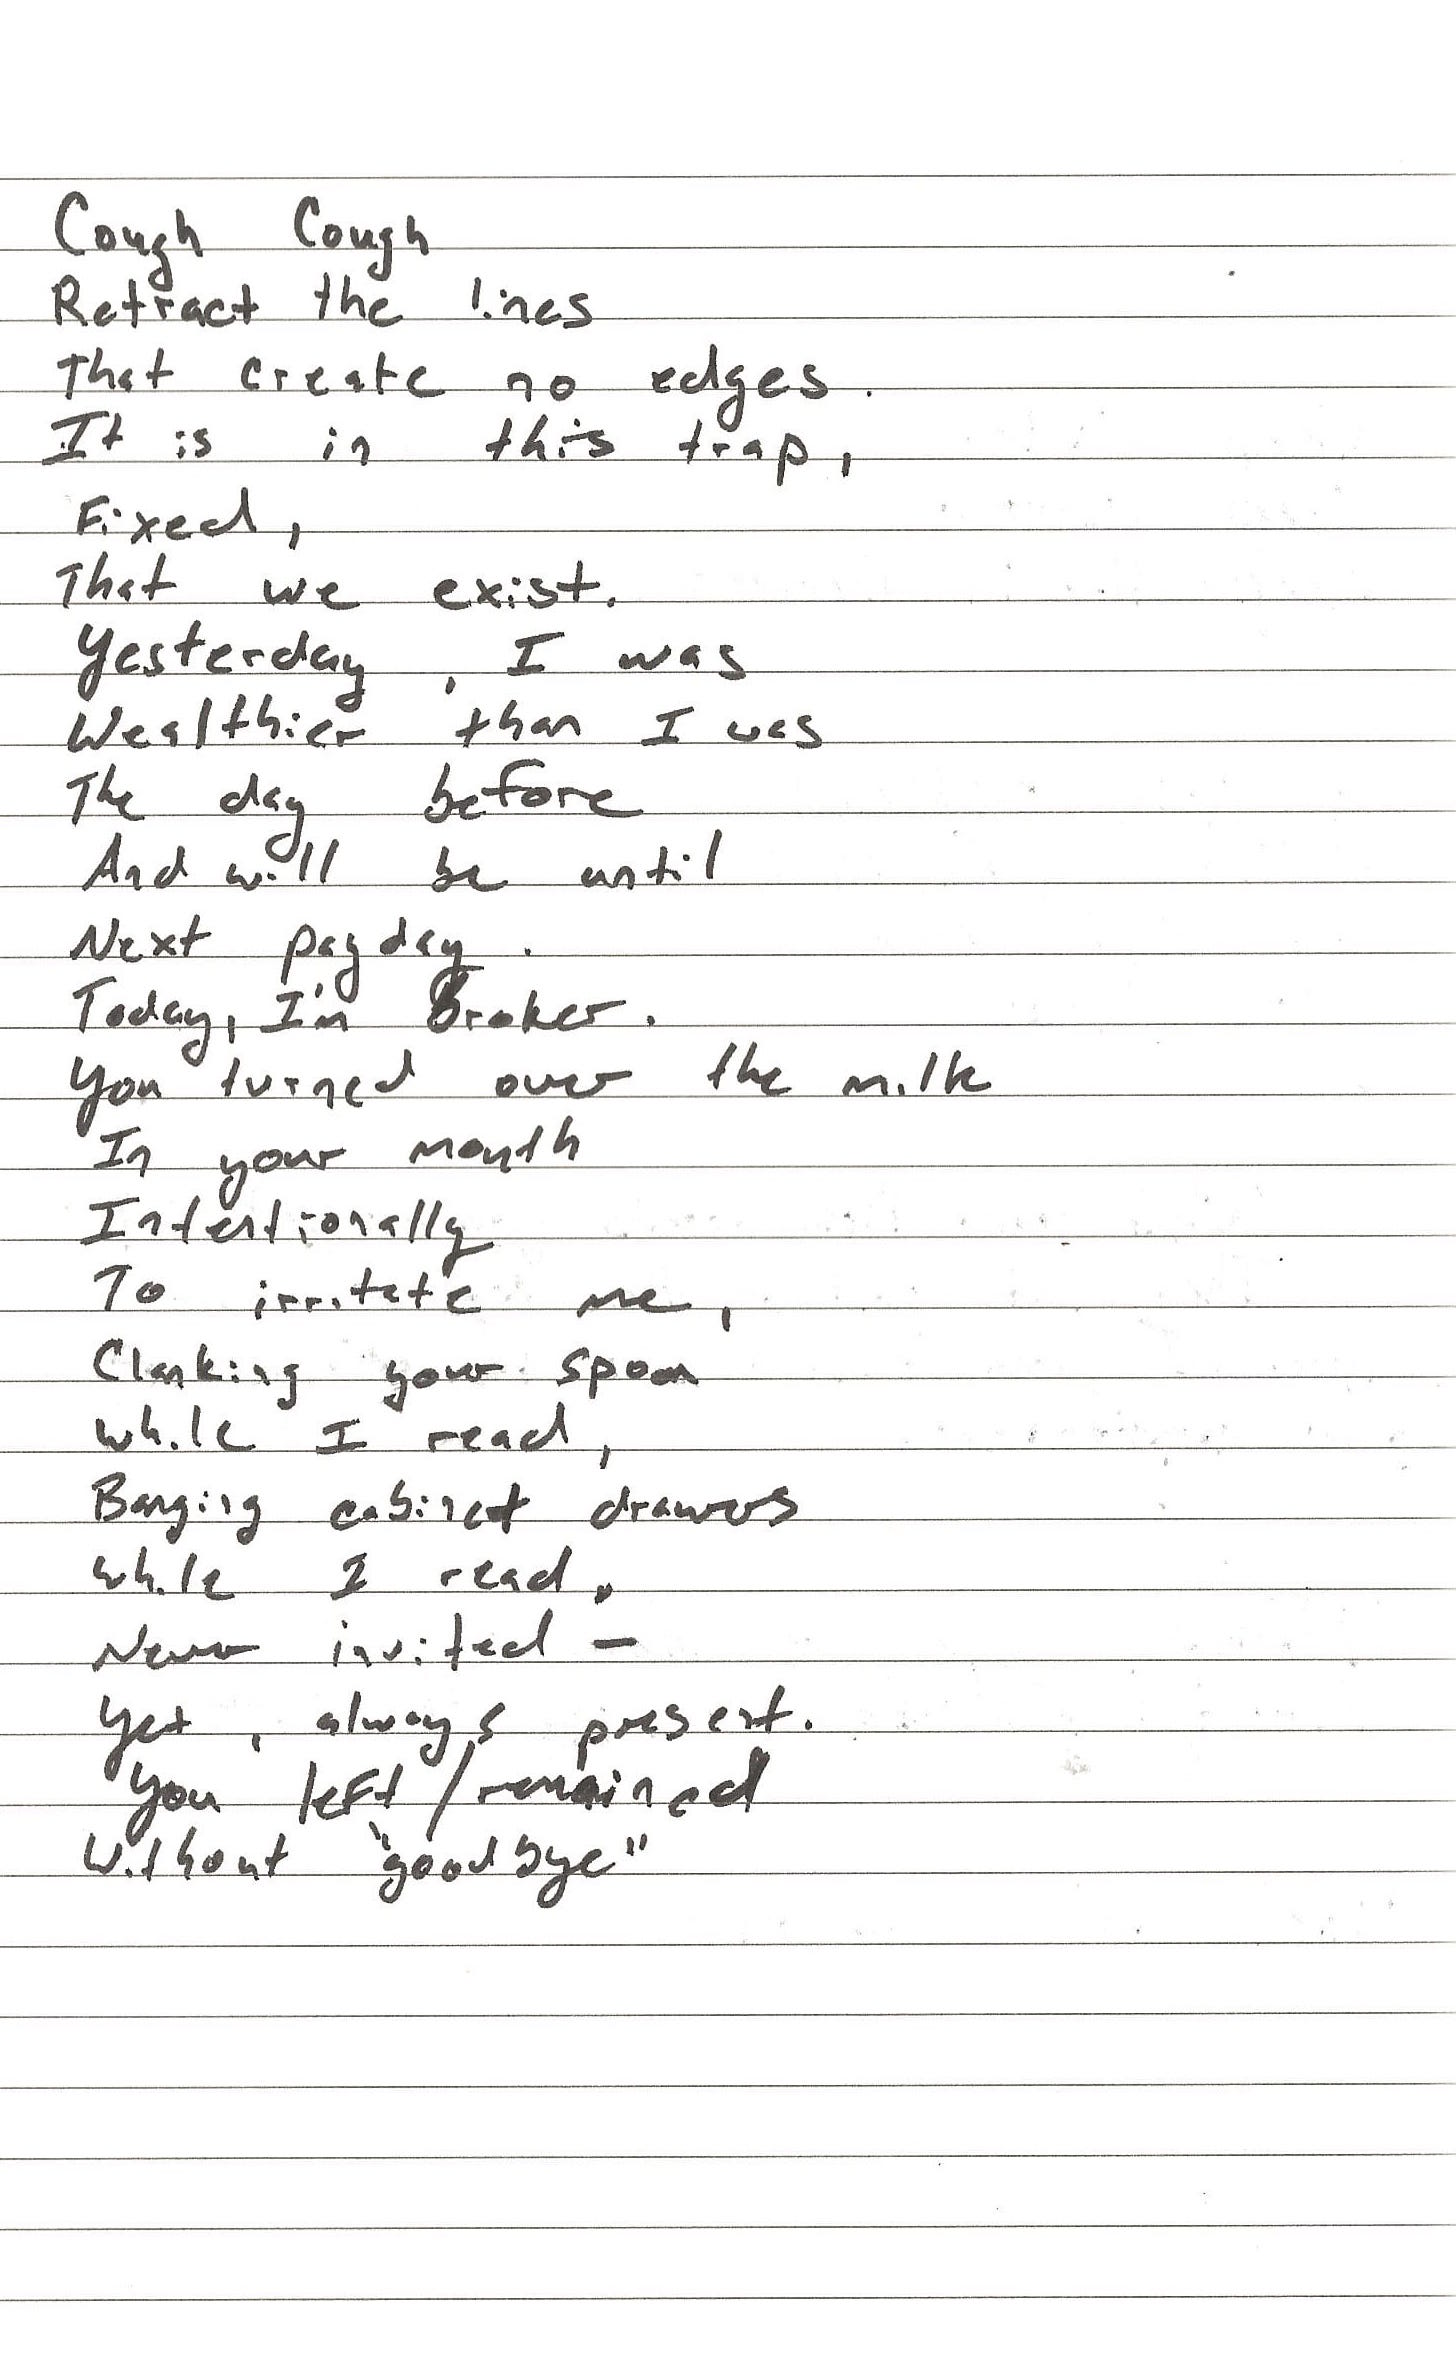 Cough Cough
Retract the lines
That create no edges.
It is in this trap,
Fixed,
That we exist.
Yesterday, I was
Wealthier than I was
The day before
And will be until
Next payday.
Today, I'm Broker.
You turned over the milk
In your mouth
Intentionally
To irritate me,
Clanking your spoon
While I read,
Banging cabinet drawers
While I read.
Never invited —
Yet, always present.
You left/remained
Without "goodbye"